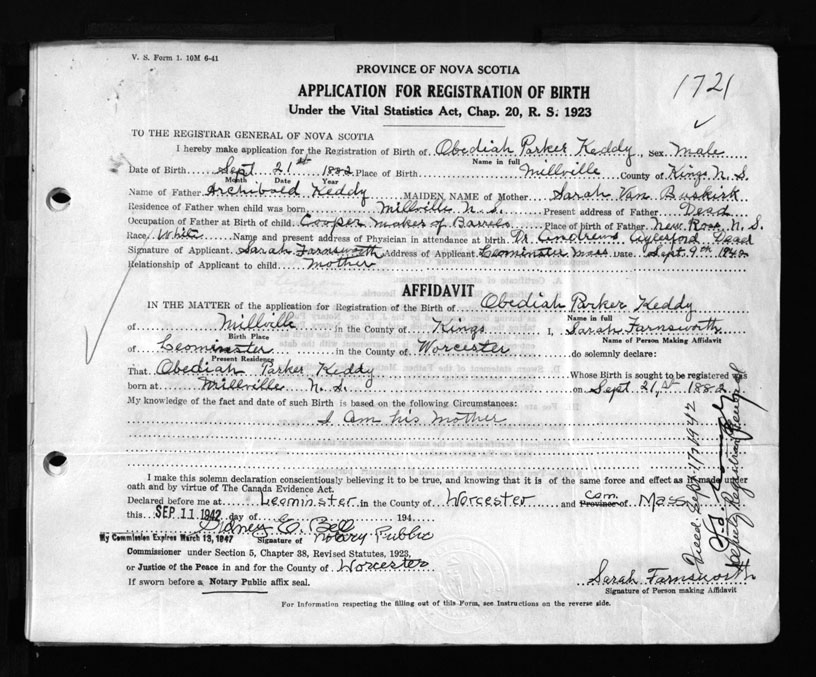 V. S. Form 1. 10M 6-41
PROVINCE OF NOVA SCOTIA
1721
APPLICATION FOR REGISTRATION OF BIRTH
Under the Vital Statistics Act, Chap. 20, R. S. 1923
TO THE REGISTRAR GENERAL OF NOVA SCOTIA
I hereby make application for the Registration of Birth of Obediah Parker Keddy, sex Male
Name in full
Date of Birth Sept 21st 1882 Place of Birth Millville County of Kings N. S.
Month Date Year
Name of Father Archibald Keddy MAIDEN NAME of Mother Sarah Van Buskirk
Residence of Father when child was born Millville N. S. Present address of Father Dead
Occupation of Father at Birth of child Cooper Maker of Barrels Place of birth of Father New Ross N. S.
Race White Name and present address of Physician in attendance at birth Dr. Andrews Aylesford Dead
Signature of Applicant Sarah Farnsworth Address of Applicant Leominster Mass Date Sept. 9th 1942
Relationship of Applicant to child Mother
AFFIDAVIT
IN THE MATTER of the application for Registration of the Birth of Obediah Parker Keddy
Name in full
of Millville in the County of Kings I, Sarah Farnsworth
Birth Place Name of Person Making Affidavit
of Leominster in the County of Worcester do solemnly declare:
Present Residence
That Obediah Parker Keddy Whose Birth is sought to be registered was
born at Millville N. S. on Sept 21,st 1882
My knowledge of the fact and date of such Birth is based on the following Circumstances:
I Am his Mother
I make this solemn declaration conscientiously believing it to be true, and knowing that it is of the same force and effect as if made under
oath and by virtue of The Canada Evidence Act.
Declared before me at Leominster in the County of Worcester and Province of Com. Mass
this SEP 11 1942 day of 194
Sidney E. Bell Notary Public
My Commission Expires March 13, 1947 Signature of
Commissioner under Section 5, Chapter 38, Revised Statutes, 1923,
or Justice of the Peace in and for the County of Worcester
If sworn before a Notary Public affix seal.
Sarah Farnsworth
Signature of Person making Affidavit
For Information respecting the filling out of this Form, see Instructions on the reverse side.
Filed Sept 17 1942
Deputy Registrar General